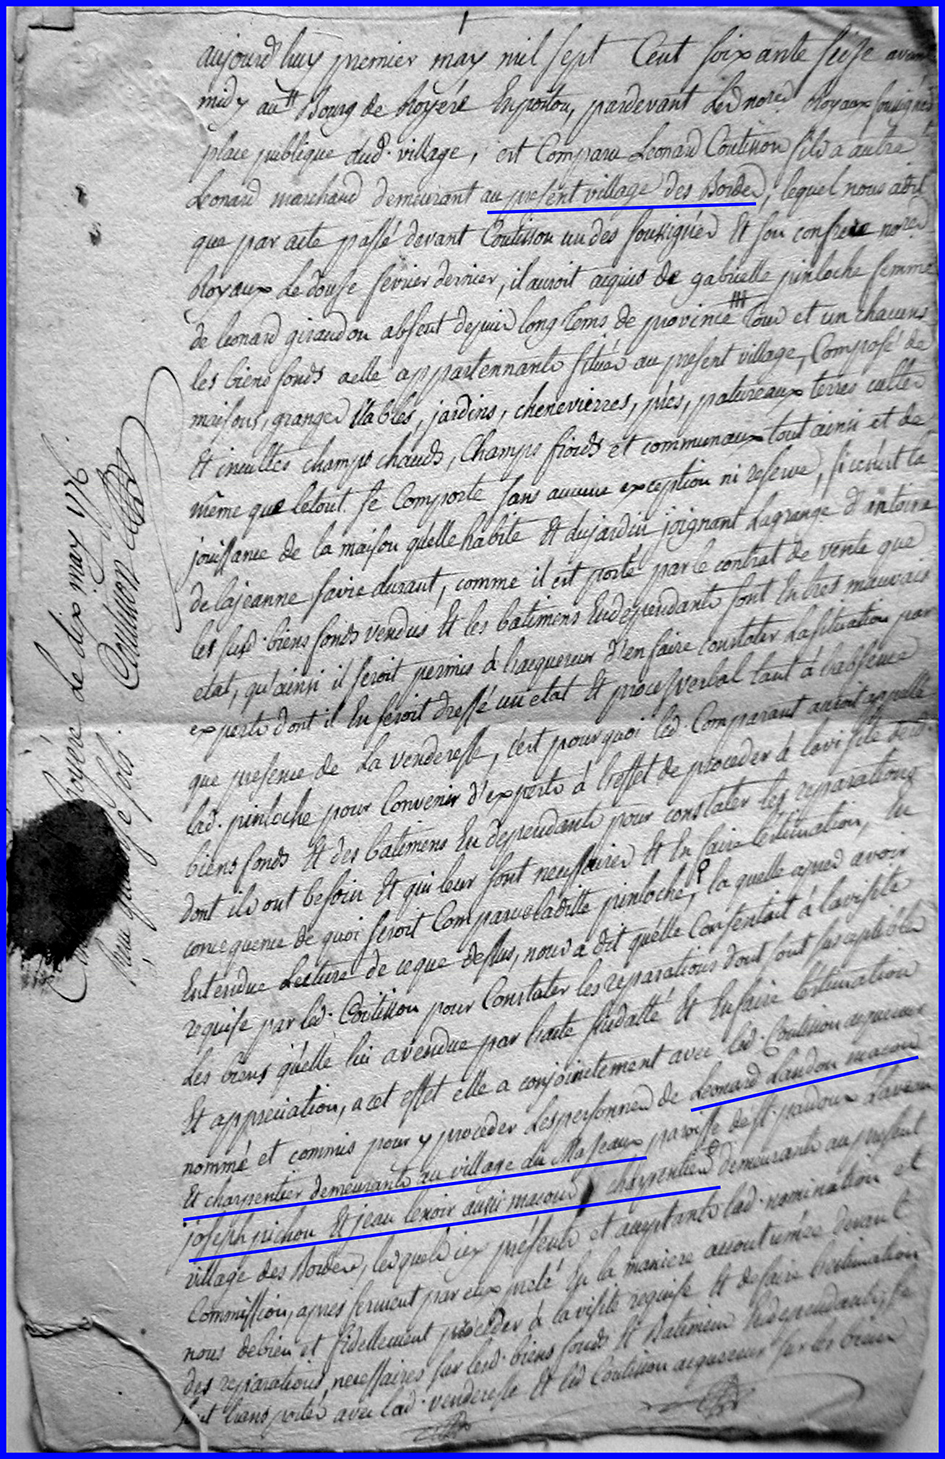 aujourd huy premier may mil sept Cent soixante seise avant
midy au Bourg de Royére En poitou, pardevant Les nores Royaux soussignés
place publique dud. village, est Comparu Leonard Coutisson fils a autre
Leonard marchand demeurant au present village des Bordes, lequel nous a dit
que par acte passé devant Coutisson un des soussignés Et son confrere nores
Royaux Le douse fevrier dernier, il auroit aquis de gabrielle pinloche femme
de leonard giraudon absent depuis long tems de province Tous et un chacuns
les biens fonds a elle appartennants situés au present village, Composé de
maisons, granges Etables, jardins, chenevierres, prés, patureaux terres cultes
Et incultes champs chauds, Champs froids et communaux tout ainsi et de
même que le tout se Comporte sans aucune exception ni reserve, si ce n'est la
jouissance de la maison qu'elle habite Et du jardin joignant La grange d'antoine
de lajeanne sa vie durant, comme il est porté par le contrat de vente que
les susd. biens fonds vendus Et les batimens En dependants sont En tres mauvais
etat, qu'ainsi il seroit permis à L'acquereur d'en faire constater La situation par
experts dont il En seroit dressé un etat Et procesverbal tant à L'absence
que presence de La venderesse, c'est pourquoi led. Comparant auroit appellé
lad. pinloche pour Convenir d'experts à l'effet de proceder à la visite desd.
biens fonds Et des batimens En dependants pour constater les reparations
dont ils ont besoin Et qui leur sont necessaires Et En faire L'estimation, En
consequence de quoi seroit Comparue ladite pinloche, la quelle apres avoir
Entendue Lecture de ce que dessus, nous a dit qu'elle Consentoit à la visite
requise par led. Coutisson pour Constater les reparations dont sont susceptibles
Les biens qu'elle lui a vendue par L'acte susdatté Et En faire L'estimation
Et appreciation, a cet effet elle a conjointement avec led. Coutisson acquereur
nommé et commis pour y proceder Les personnes de Leonard Landon macon
Et charpentier demeurants au village du Masseaux paroisse de St. pardoux Lavaux
joseph pichon Et jean lenoir aussi macons charpentiers demeurants au present
village des Bordes, lesquels icy présents et acceptants lad. nomination et
Commission, apres serment par eux prété En la maniere accoutumée devant
nous de bien et fidellement proceder à la visite requise Et de faire L'estimation
des reparations necessaires sur lesd. biens fonds Et Batimens En dependants, se
sont transportés avec lad. venderesse Et led. Coutisson acquereur sur les biens
Royére le dix may 1776.
Coutisson